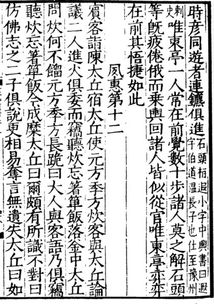 時彥同遊者連鑣俱進石頭桓遐小字中興書曰遐字伯道溫長子也仕至豫州
刺史唯東亭一人常在前覺數十步諸人莫之解石頭
等既疲倦俄而乘輿回諸人皆似從官唯東亭弈弈
在前其悟捷如此
夙惠第十二
賓客詣陳太丘宿太丘使元方季方炊客與太丘論
議二人進火俱委而竊聽炊忘著箄飯落釜中太丘
問炊何不餾元方季方長跪曰大人與客語乃俱竊
聽炊忘著箄飯今成糜太丘曰爾頗有所識不對曰
仿佛志之二子俱說更相易奪言無遺失太丘曰如